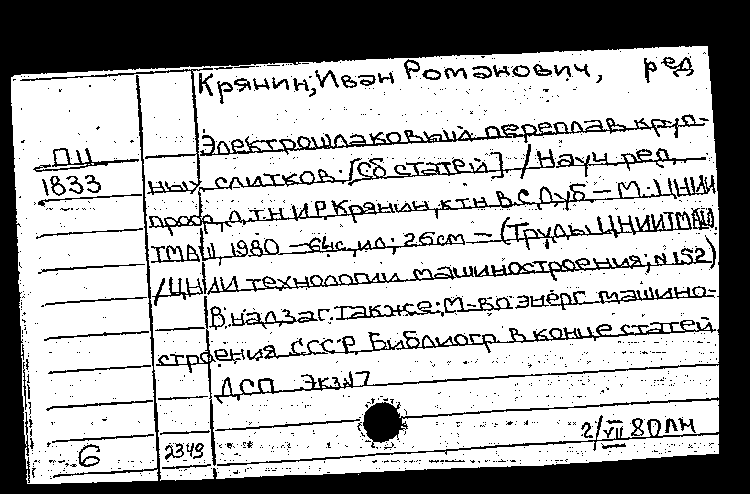 Крянин, Иван Романович, ред
Электрошлаковый переплав круп-
П11
1833
ных слитков. [Сб статей] / Науч ред.
проф, д.т.н И.Р. Крянин, к.т.н В.С. Дуб. – М.: ЦНИИ
ТМАШ, 1980 – 64с, ил; 26см – (Труды ЦНИИТМАШ
/ЦНИИ технологии машиностроения; N152)
В надзаг. также: М-во энерг машино-
строения СССР. Библиогр в конце статей
ДСП Экз N7
2/VII 80 ЛН
6 2349